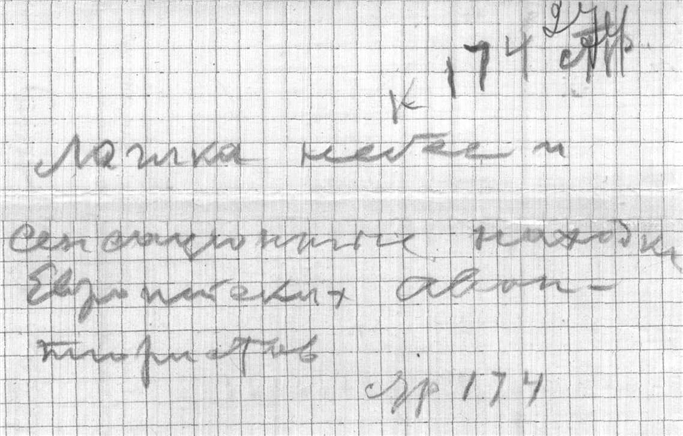 к 174 стр.
Логика небес и
сенсационные находки
Европейских аван-
тюристов
стр 174